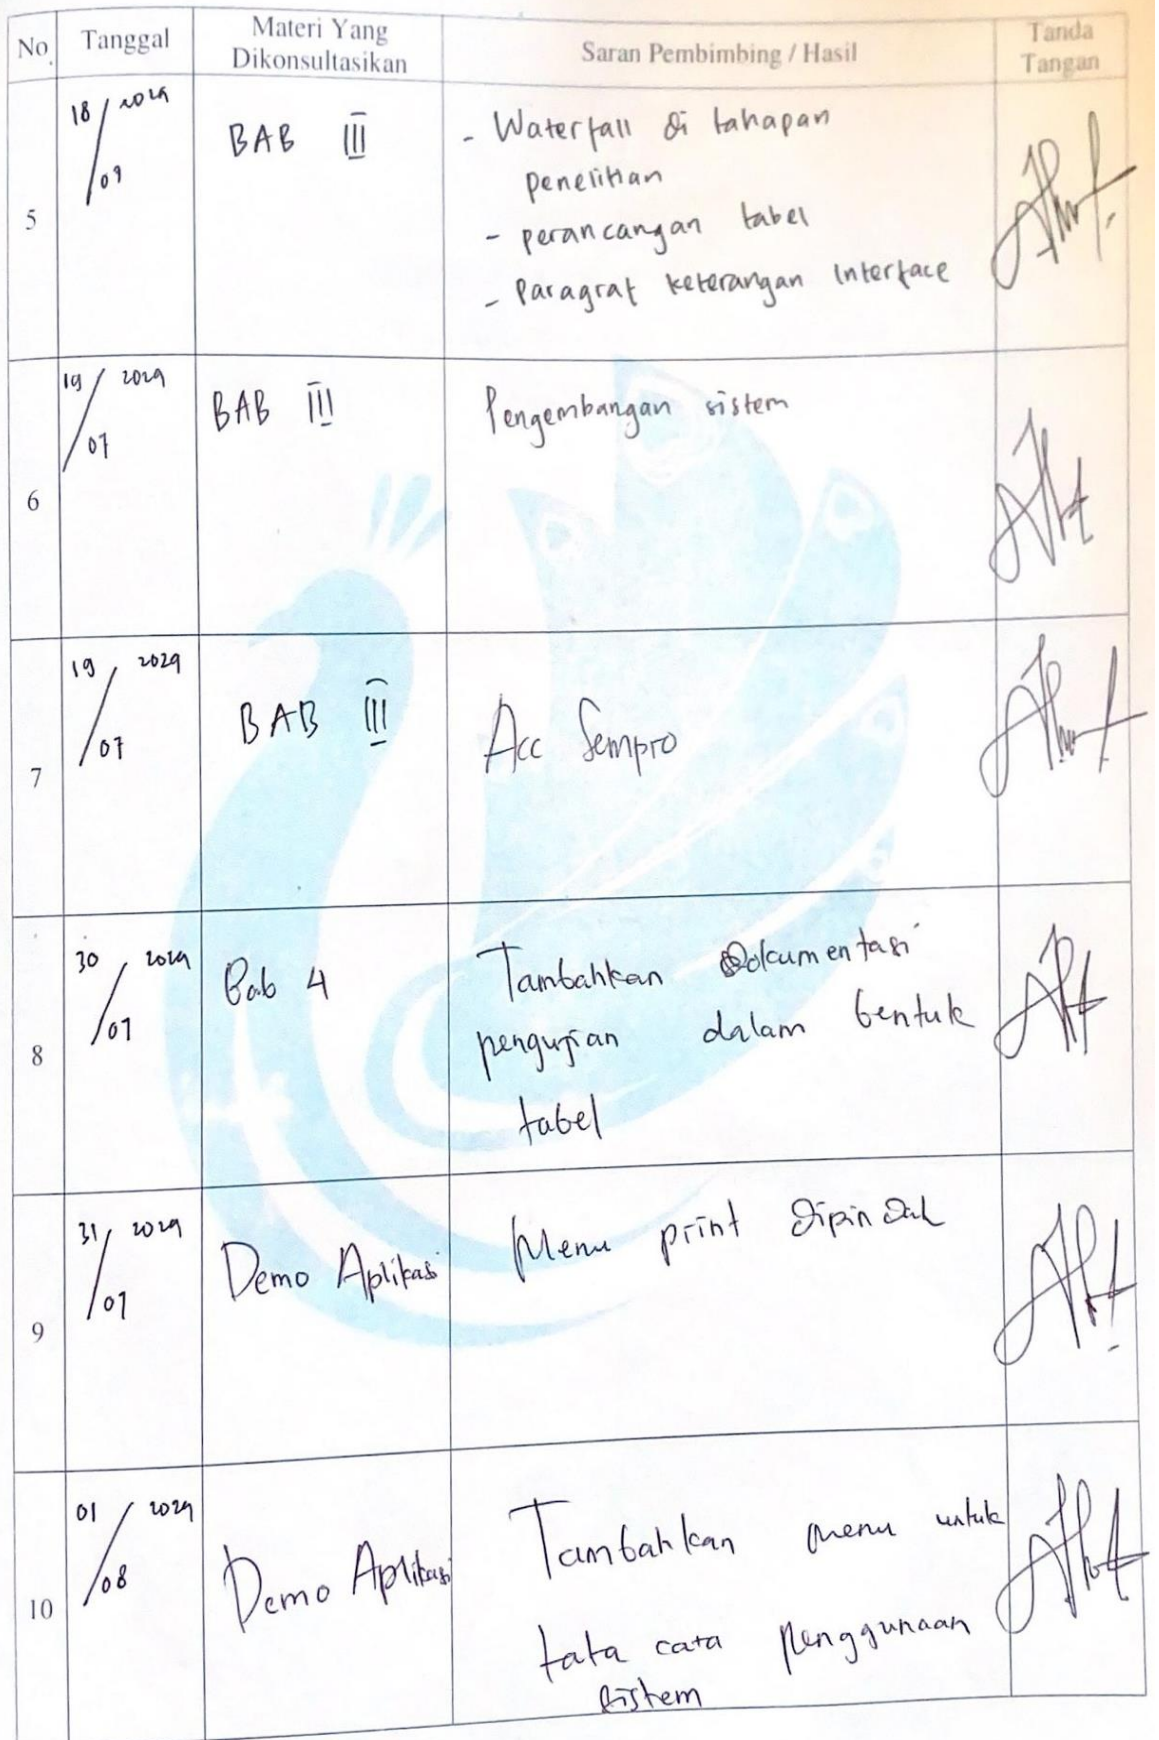 No.
Tanggal
Materi Yang
Dikonsultasikan
Saran Pembimbing / Hasil
Tanda
Tangan
5
18 / 2024
/ 07
BAB III
- Waterfall di tahapan
penelitian
- perancangan tabel
- Paragraf keterangan Interface
6
19 / 2024
/ 07
BAB III
Pengembangan sistem
7
19 / 2024
/ 07
BAB III
Acc Sempro
8
30 / 2024
/ 07
Bab 4
Tambahkan Dokumentasi
pengujian dalam bentuk
tabel
9
31 / 2024
/ 07
Demo Aplikasi
Menu print dipindah
10
01 / 2024
/ 08
Demo Aplikasi
Tambahkan menu untuk
tata cara penggunaan
sistem